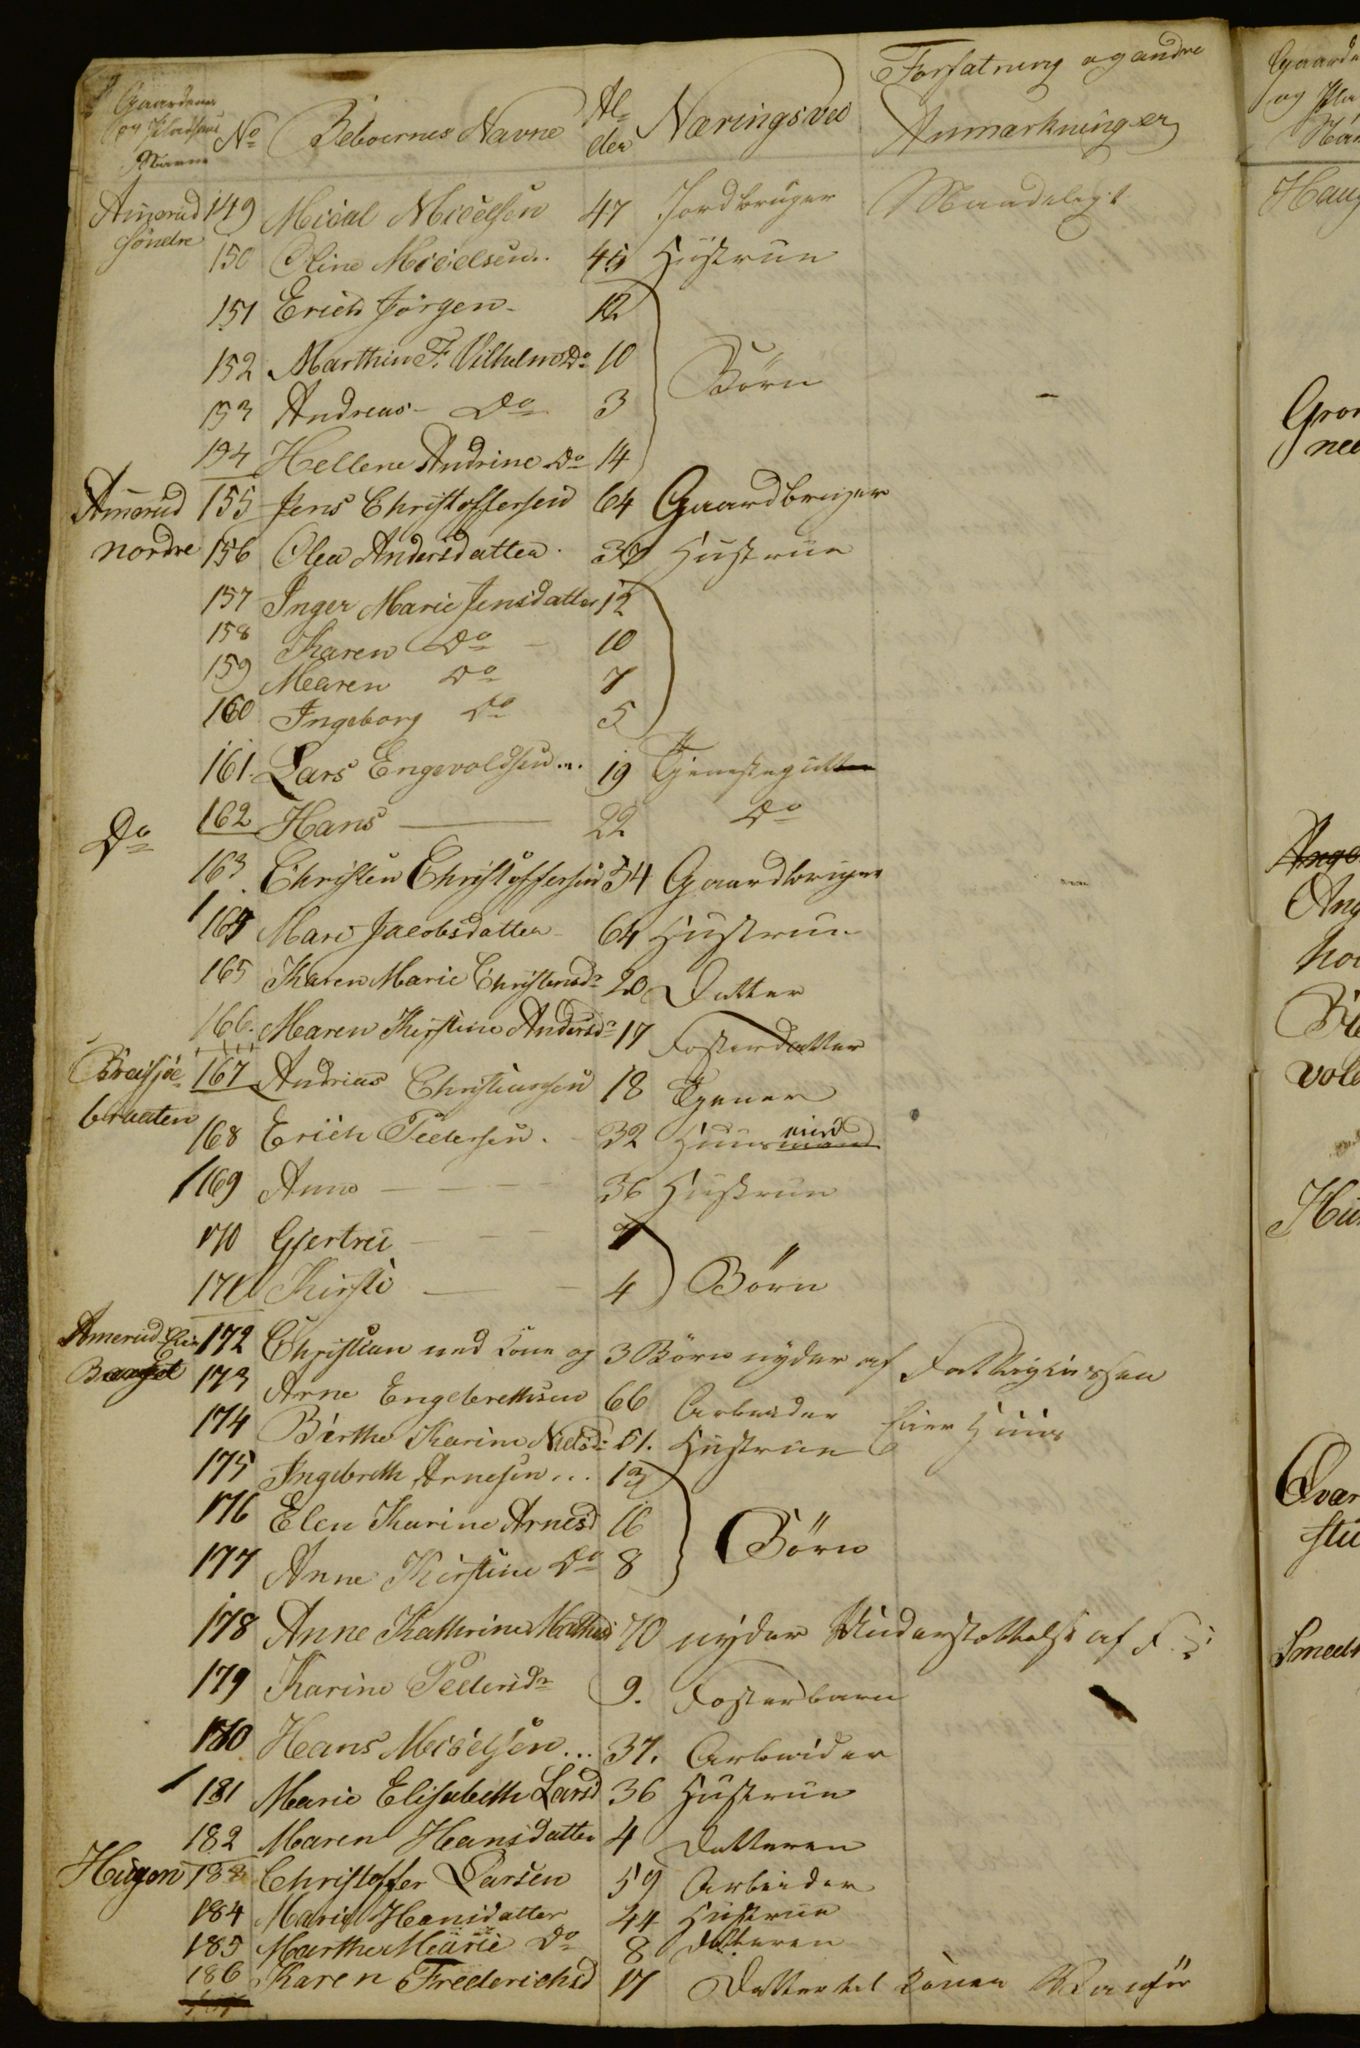 Gaardenes og Pladsenes Navne | No | Beboernes Navne | Alder | Næringsvei | Forfatning og andre Anmærkninger
Amerud søndre 149 Micael Micelsen 47 Jordbruger Maadeligt
150 Oline Micelsen 45 Hustrue
151 Erich Jörgen 12
152 Marthin F. Vilhelms Do 10 Börn
153 Andreas Do 3
154 Hellene Andrine Do 14
Amerud nordre 155 Jens Christoffersen 64 Gaardbruger
156 Olea Andersdatter 38 Hustrue
157 Inger Marie Jensdatter 12
158 Karen Do 10
159 Maren Do 7
160 Ingeborg Do 5
161 Lars Engevoldsen 19 Tjenestegut
162 Hans 22 Do
Do 163 Christen Christoffersen 54 Gaardbruger
164 Mari Jacobsdatter 64 Hustrue
165 Karen Marie Christensdr 20 Datter
166 Maren Kirstine Andersdr 17 Fosterdatter
167 Andrias Christiansen 18 Tjener
Breisjøebraaten 168 Erich Pedersen 32 Huusmand
169 Anne 36 Hustrue
170 Gjertru 7
171 Kirsti 4 Börn
Amerud Eie 172 Christian med Kone og 3 Börn nyder af Fattigkassen
173 Arne Engebrethsen 66 Arbeider Eier Huus
174 Birthe Karine Nielsdr 51. Hustrue
175 Ingebreth Arnesen
176 Elen Karine Arnesd 16 Börn
177 Anne Kirstine Do 8
178 Anne Kathrine 70 nyder Understøttelse af F.
179 Karine Pedersdr 9. Fosterbarn
180 Hans Micelsen 37. Arbeider
181 Marie Elisabeth Larsd 36 Hustrue
182 Maren Hansdatter 4 Datteren
Haugen 183 Christoffer Larsen 59 Arbeider
184 Marie Hansdatter 44 Hustrue
185 Marthe Marie Do 8 Datteren
186 Karen Frederichsd 17 Datter til Konen Vanför